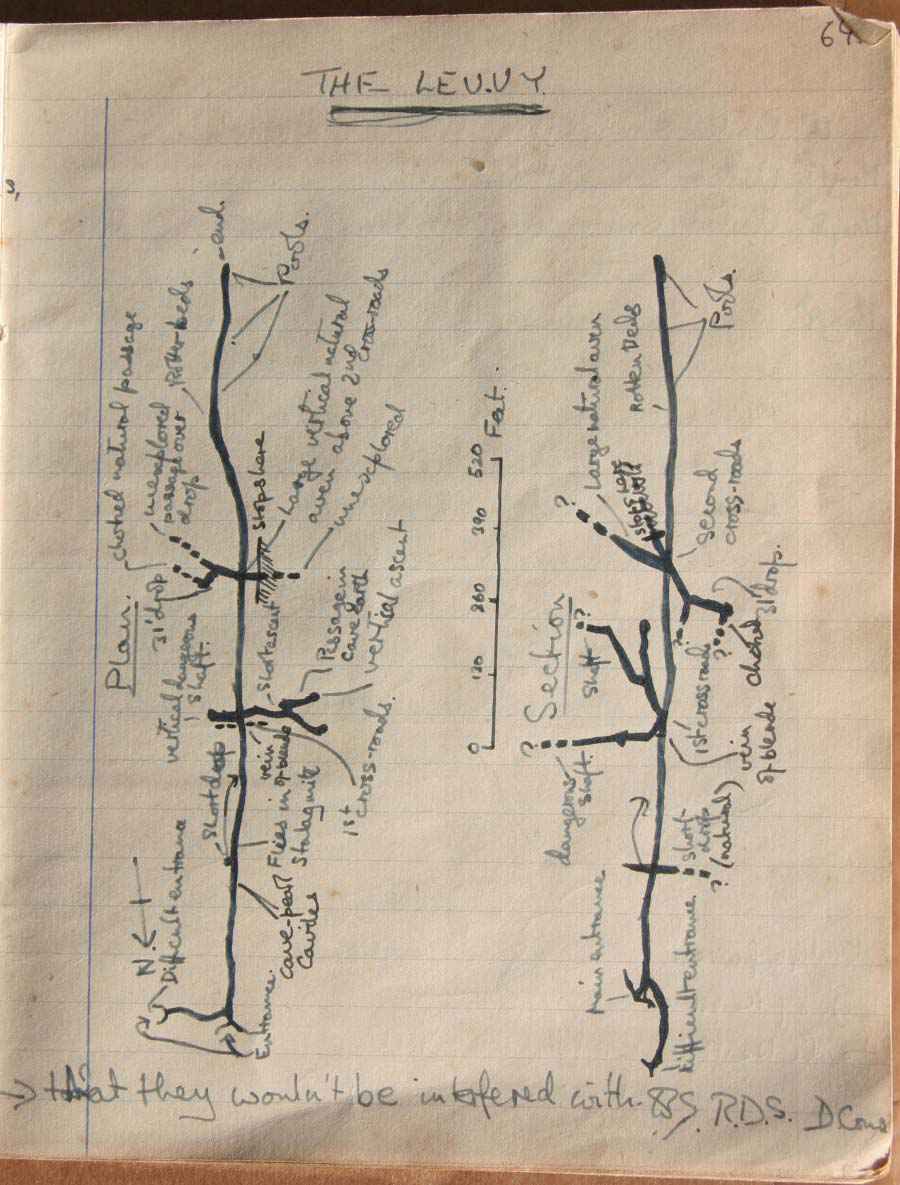 64.
THE LEVVY
Plan.
choked natural passage
unexplored
passage over
drop
Rotten-beds
end.
Pools.
31' drop
Stops here
Large vertical natural
aven above 2nd
cross-roads
unexplored
vertical dangerous
shaft.
Short ascent
Passage in
Cave earth
vertical ascent
short drop
vein
of blende
1st
cross-roads.
Flies in
Stalagmite
Cave-pearl
Cavities
N.
Difficult entrance
Entrance.
0 130 260 390 520 Feet.
Section
?
Large natural aven
Rotten Beds
Pools.
Second
cross-roads
31' drop.
choked
?
?
shaft
??
1st cross roads
vein
of blende
?
dangerous
shaft.
short
drop
(natural)
?
Main entrance
difficult entrance
→ that they wouldn't be interfered with. R.D.S.